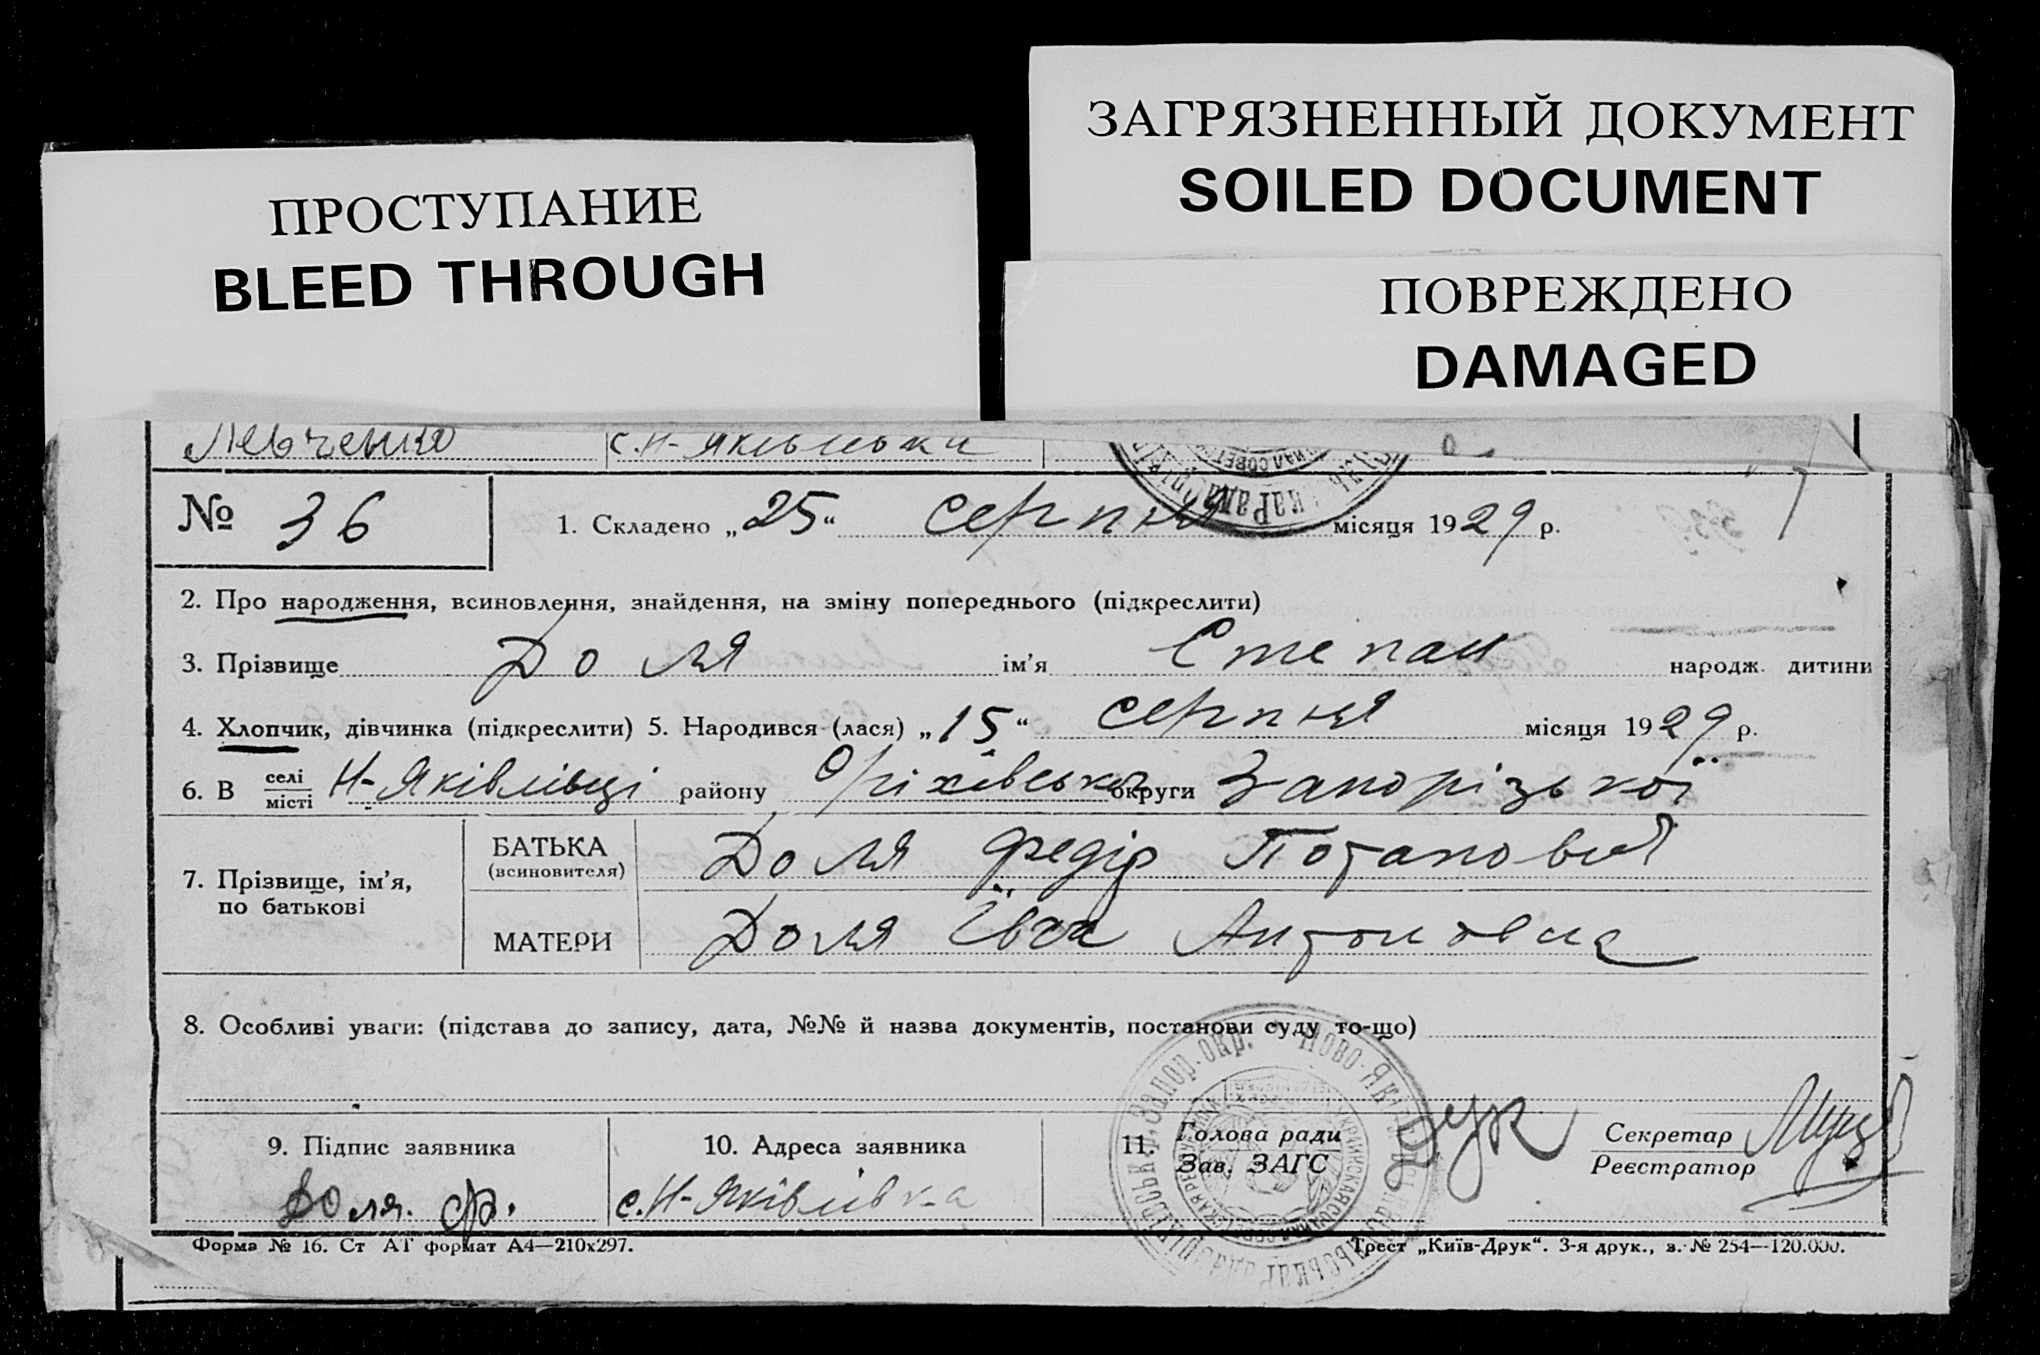 ПРОСТУПАНИЕ
BLEED THROUGH
ЗАГРЯЗНЕННЫЙ ДОКУМЕНТ
SOILED DOCUMENT
ПОВРЕЖДЕНО
DAMAGED
Левченко с. Н-Яківлівка
№ 36 1. Складено „25“ серпня місяця 1929 р.
2. Про народження, всиновлення, знайдення, на зміну попереднього (підкреслити)
3. Прізвище Доля ім’я Степан народж. дитини
4. Хлопчик, дівчинка (підкреслити) 5. Народився (лася) „15“ серпня місяця 1929 р.
6. В селі/місті Н-Яківлівці району Оріхівського округи Запорізької
7. Прізвище, ім’я, по батькові
БАТЬКА (всиновителя) Доля Федір Потапович
МАТЕРИ Доля Ївга Антоновна
8. Особливі уваги: (підстава до запису, дата, №№ й назва документів, постанови суду то-що)
9. Підпис заявника 10. Адреса заявника 11. Голова ради Секретар
Зав. ЗАГС Реєстратор
Доля. Ф. с. Н-Яківлівка
Форма № 16. Ст АГ формат А4—210х297. Трест „Київ-Друк“. 3-я друк., з. № 254—120.000.